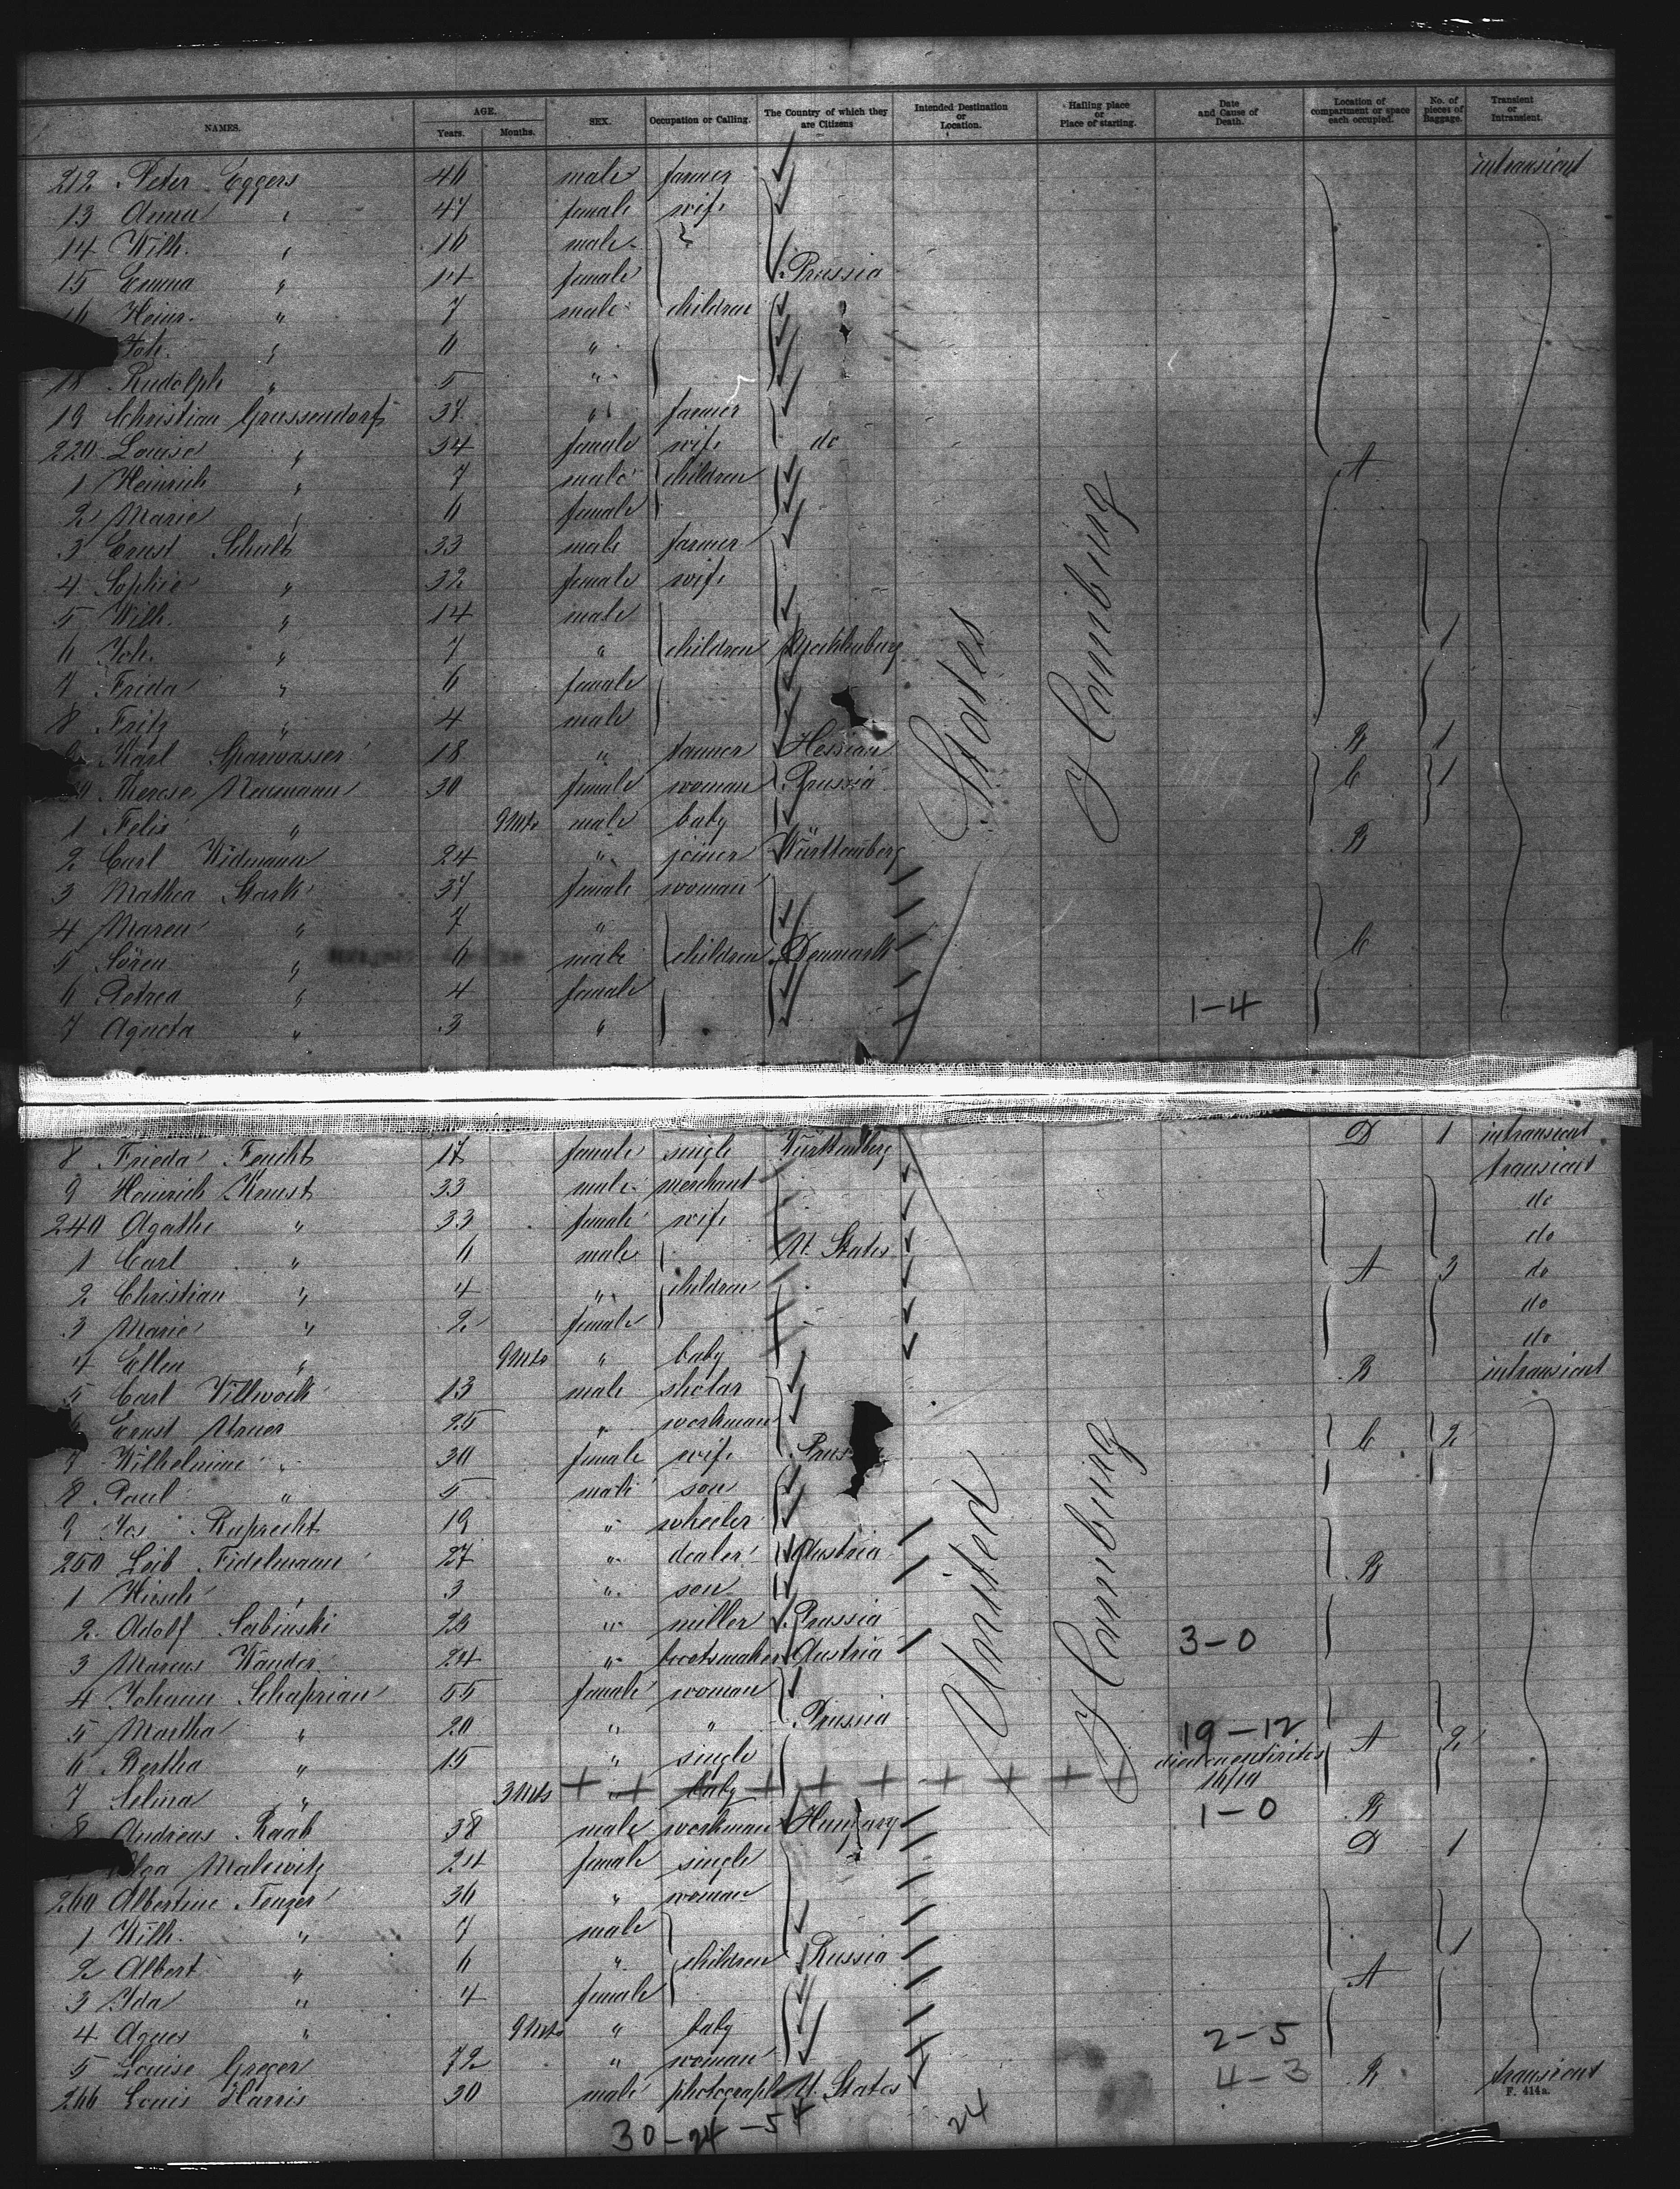 NAMES. AGE. Years. Months. SEX. Occupation or Calling. The Country of which they are Citizens Intended Destination or Location. Hailing place or Place of starting. Date and Cause of Death. Location of compartment or space each occupied. No. of pieces of Baggage. Transient or Intransient.
212 Peter Eggers 46 male farmer intransient
13 Anna " 47 female wife
14 Wilh. " 16 male
15 Emma " 14 female Prussia
16 Heinr. " 7 male children "
Joh. " 6 "
18 Rudolph " 5 "
19 Christian Grussendorf 37 " farmer
220 Louise " 34 female wife do
1 Heinrich " 7 male children A
2 Marie " 6 female
3 Ernst Schult 33 male farmer
4 Sophie " 32 female wife
5 Wilh. " 14 male
6 Joh. " 7 " children Mecklenburg 1
7 Frieda " 6 female
8 Fritz " 4 male
Karl Sparwasser 18 " farmer Hessian B 1
30 Therese Neumann 30 female woman Prussia C 1
1 Felix " 9 Mts male baby
2 Carl Widmann 24 " joiner Württemberg B
3 Mathea Stark 37 female woman
4 Maren " 7 "
5 Sören " 6 male children Denmark C
6 Petrea " 4 female
7 Agneta " 3 " 1-4
States
Hamburg
8 Frieda Feucht 17 female single Württemberg D 1 intransient
9 Heinrich Knust 33 male merchant transient
240 Agathe " 33 female wife do
1 Carl " 6 male U. States do
2 Christian " 4 " children A 3 do
3 Marie " 2 female do
4 Ellen " 9 Mts " baby do
5 Carl Villwock 13 male sholar B intransient
Ernst 25 " workman
7 Wilhelmine " 30 female wife Prus C 2
8 Paul " 5 male son
9 Jos Ruprecht 19 " wheeler
250 Leib Fidelmann 27 " dealer Austria B
1 Hirsch " 3 " son
2 Adolf Sabinski 25 " miller Prussia
3 Marcus Wander 24 " bootsmaker Austria 3-0
4 Johann Schaprian 55 female woman
5 Martha " 20 " " Prussia 19-12 A 2
6 Bertha " 15 " single
7 Selma " 3 Mts " baby died 16/10
8 Andreas Raab 38 male workman Hungary 1-0 B
Olga Malewitz 24 female single D 1
260 Albertine Fenzer 36 " woman
1 Wilh. " 7 male
2 Albert " 6 " children Russia A 1
3 Ida " 4 female
4 Agnes " 9 Mts " baby
5 Louise Greger 72 " woman 2-5
266 Louis Harris 30 male photograph U. States 4-3 B transient
United
Hamburg
F. 414a.
30-24-54
24